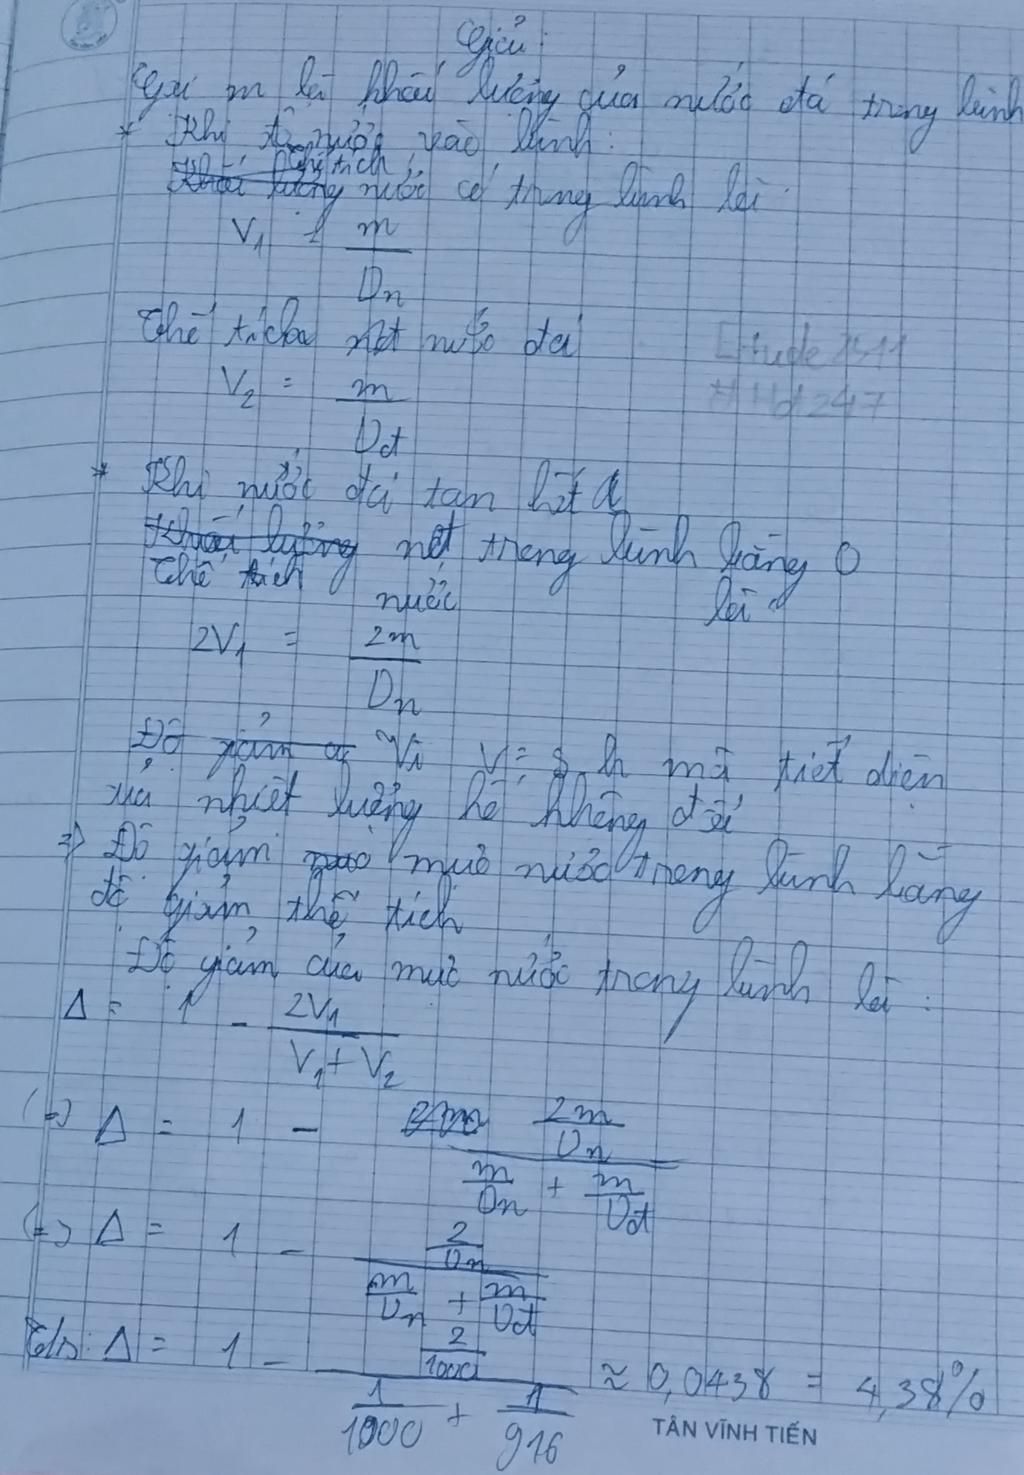 Giải:
Gọi m là khối lượng của nước đá trong bình
* Khi đổ nước vào bình:
Thể tích nước có trong bình là:
V₁ = m/Dn
Thể tích nước đá
Etude 2511
V₂ = m/Dđ
* Khi nước đá tan hết
Thể tích nước trong bình bằng 0 là
2V₁ = 2m/Dn
Vì V = S.h mà tiết diện
của nhiệt lượng kế không đổi
=> Độ giảm mức nước trong bình bằng
độ giảm thể tích
Độ giảm của mực nước trong bình là:
Δ = 1 - 2V₁/(V₁ + V₂)
(=) Δ = 1 - (2m/Dn)/(m/Dn + m/Dđ)
(=) Δ = 1 - (2/Dn)/(m/Dn + m/Dđ)
Δ = 1 - (2/1000)/(1/1000 + 1/916) ≈ 0,0438 = 4,38%
TÂN VĨNH TIẾN